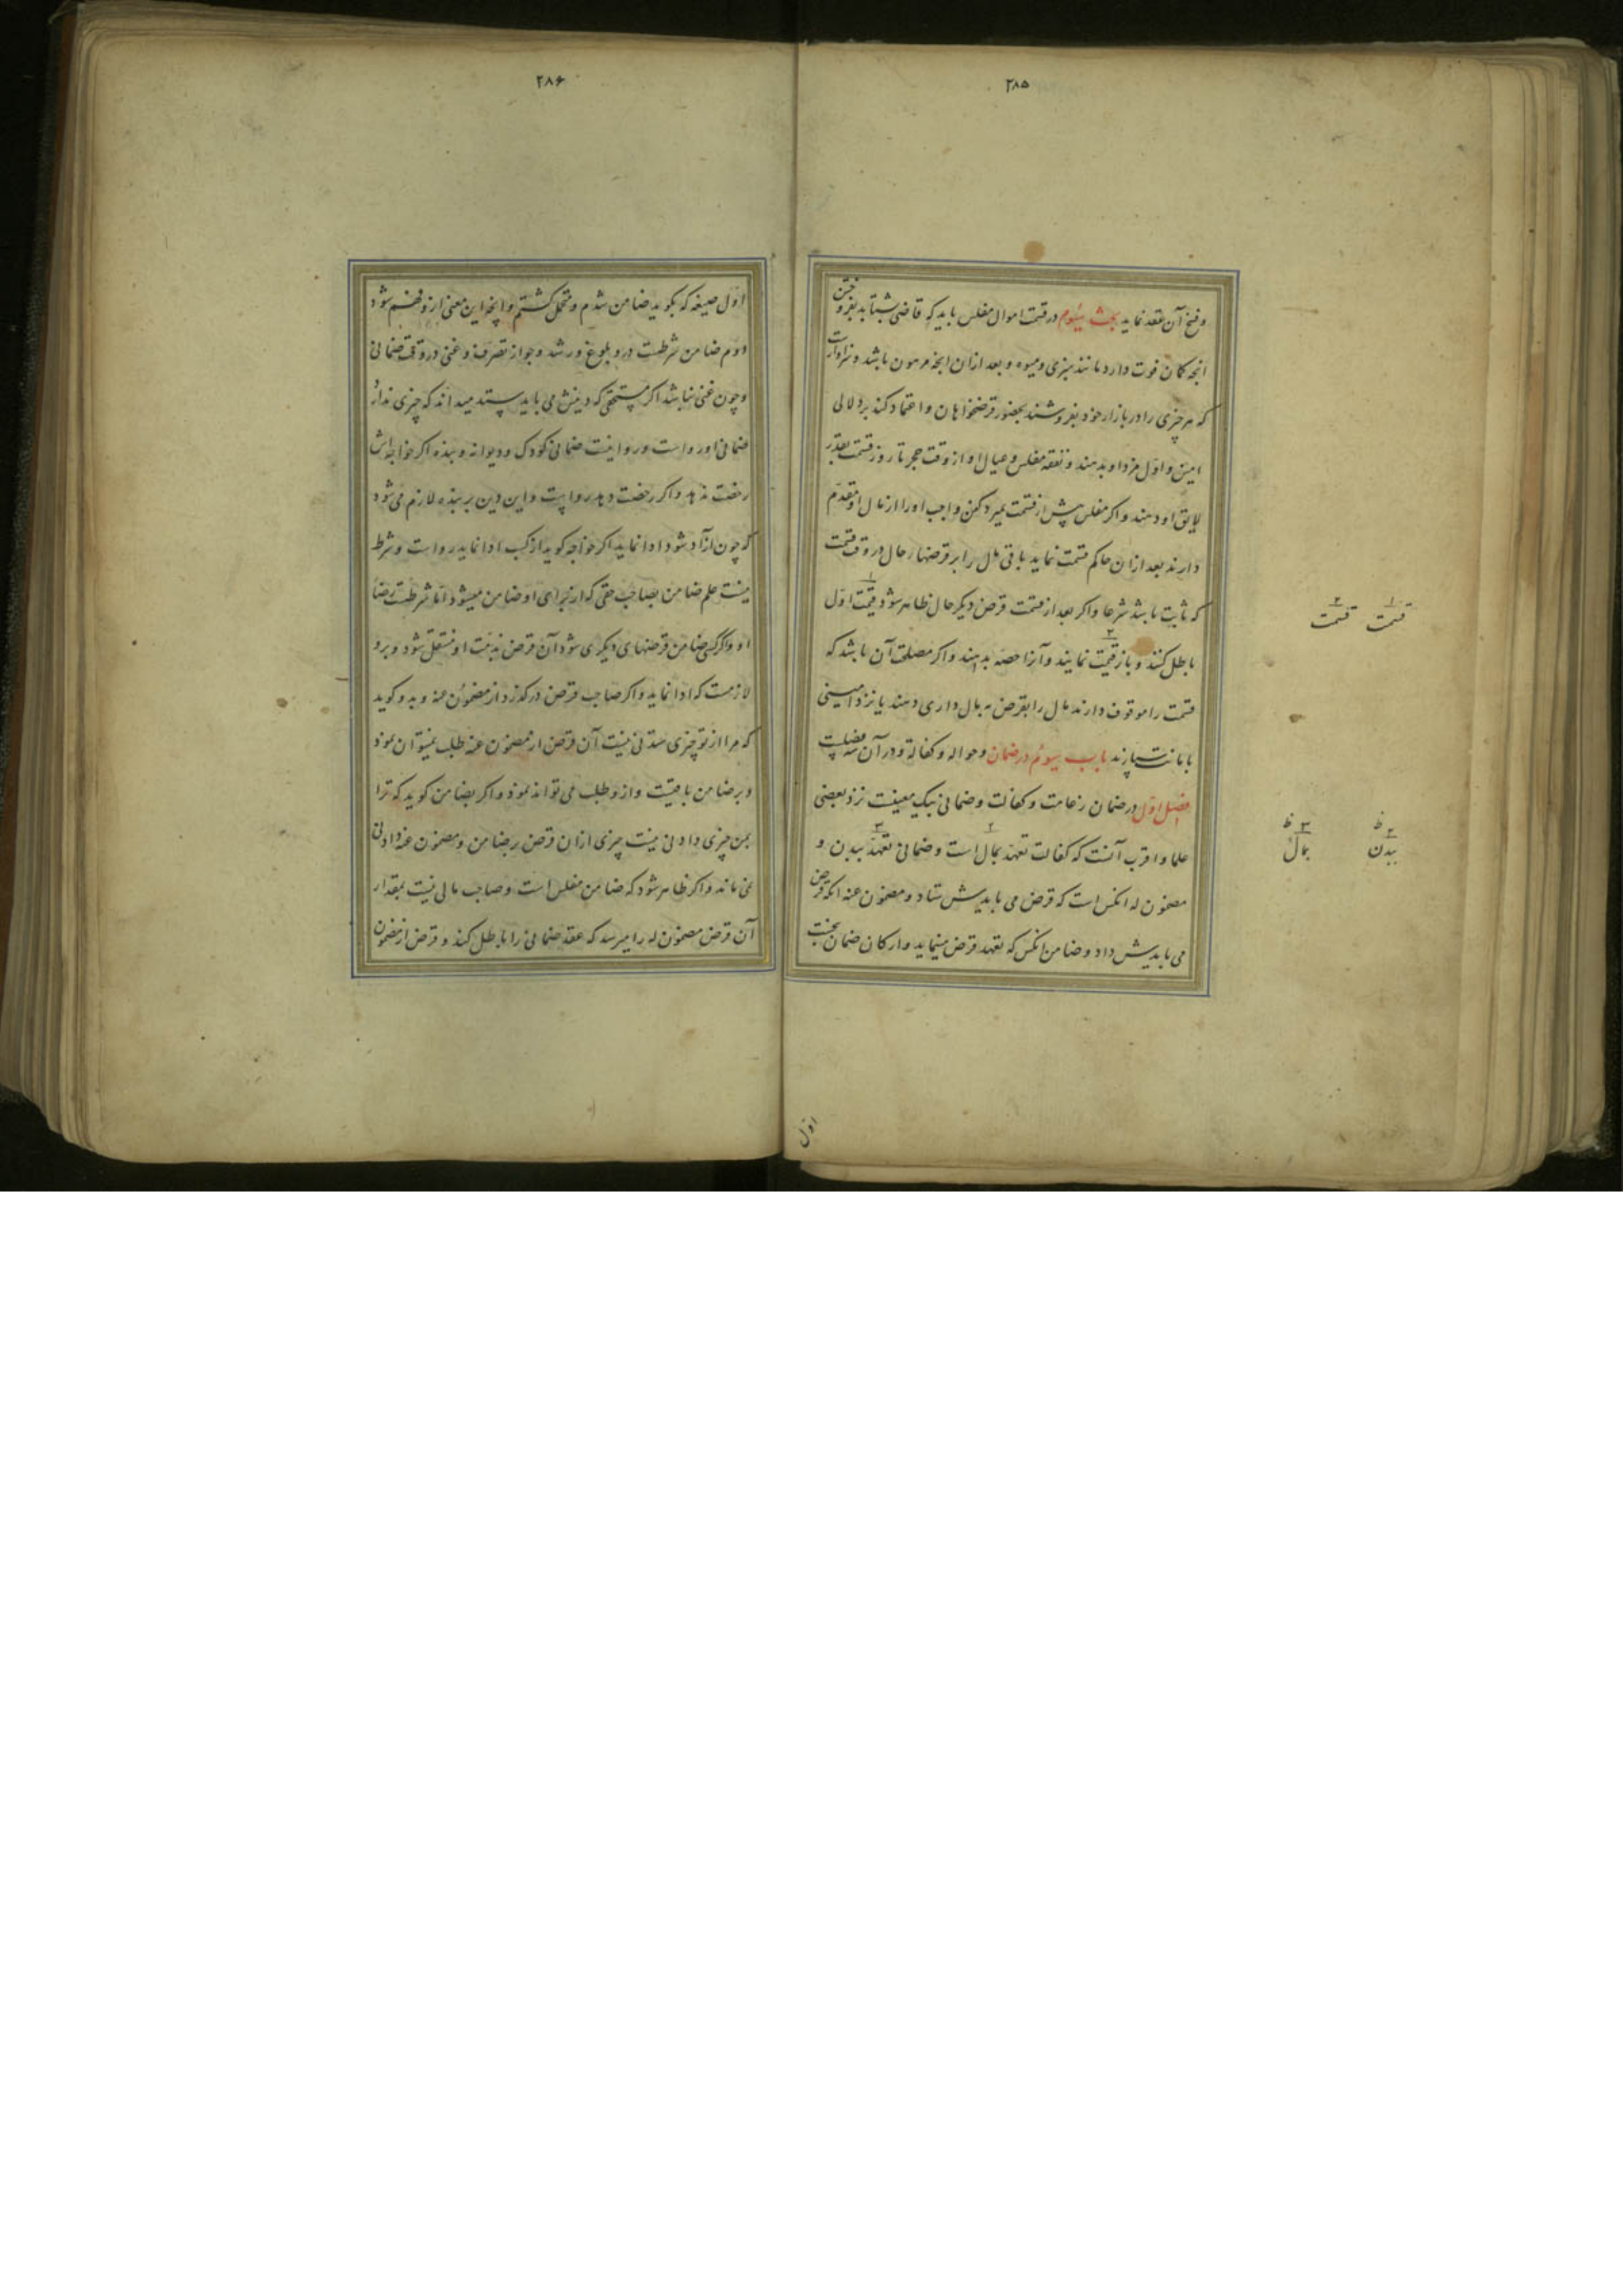 ۲۸۵
و فسخ آن عقد نماید بحث سیّوم در قسمت اموال مفلس باید که قاضی شتابد بفروختن
انچه کمان فوت دارد مانند سبزی و میوه و بعد ازان انچه مرهون باشد و سزاوارست
که هر چیزی را در بازار خود بفروشند بحضور قرضخواهان و اعتماد کند بر دلالی
امین و اول مزد او بدهند و نفقه مفلس و عیال او از وقت حجر تا روز قسمت بقدر
لایق او دهند و اکر مفلس پیش از قسمت بمیرد کفن واجب او را از مال او مقدم
دارند بعد ازان حاکم قسمت نماید باقی مال را بر قرضهاء حال در وقت قسمت
که ثابت باشد شرعا و اکر بعد از قسمت قرض دیکر حال ظاهر شود قیمت اوّل
باطل کنند و باز قیمت نمایند و آنرا حصه بدهند و اکر مصلحت آن باشد که
قسمت را موقوف دارند مال را بقرض به مال داری دهند یا نزد امینی
بامانت سپارند باب سیوم در ضمان و حواله و کفالة و در آن سه فصلست
فصل اوّل در ضمان زعامت و کفالت و ضمانی بیک معنیست نزد بعضی
علما و اقرب آنست که کفالت تعهد بمال است و ضمانی تعهد ببدن و
مضمون له انکس است که قرض می بایدش ستاد و مضمون عنه انکه قرض
می بایدش داد و ضامن انکس که تعهد قرض مینماید و ارکان ضمان پنجست
۱ قسمت ۲ قسمت
۲ ظ ببدن ۳ ظ بمال
اول
۲۸۶
اوّل صیغه که بکوید ضامن شدم و متحمل کشتم و انچه این معنی ازو فهم شود
دوم ضامن شرطست درو بلوغ و رشد و جواز تصرف و غنی در وقت ضمانی
و چون غنی نباشد اکر مستحقی که دینش می باید ستد میداند که چیزی ندارد
ضمانی او رواست و روا نیست ضمانی کودک و دیوانه و بنده اکر خواجه‌اش
رخصت ندهد و اکر رخصت دهد رواست و این دین بر بنده لازم می شود
که چون ازاد شود ادا نماید اکر خواجه کوید از کسب ادا نماید رواست و شرط
نیست علم ضامن بصاحب حقی که از برای او ضامن میشود اما شرطست رضا
او و اکر کسی ضامن قرضهای دیکری شود آن قرض بذمت او منتقل شود و برو
لازمست که ادا نماید و اکر صاحب قرض درکذرد از مضمون عنه و بدو کوید
که مرا از تو چیزی ستدنی نیست آن قرض از مضمون عنه طلب نمیتوان نمود
و بر ضامن باقیست و ازو طلب می تواند نمود و اکر بضامن کوید که ترا
بمن چیزی دادنی نیست چیزی ازان قرض بر ضامن و مضمون عنه دادنی
نمی ماند و اکر ظاهر شود که ضامن مفلس است و صاحب مالی نیست بمقدار
آن قرض مضمون له را میرسد که عقد ضمانی را باطل کند و قرض از مضمون